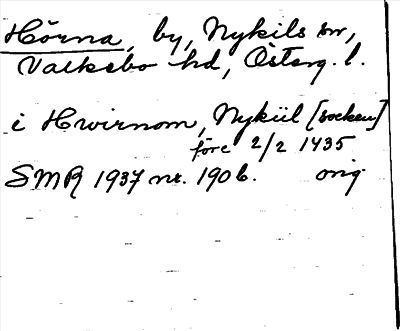 Hörna, by, Nykils sn,
Valkebo hd, Österg. l.
i Hwirnom, Nykiil [socken]
före 2/2 1435
SMR 1937 nr. 190 b. orig